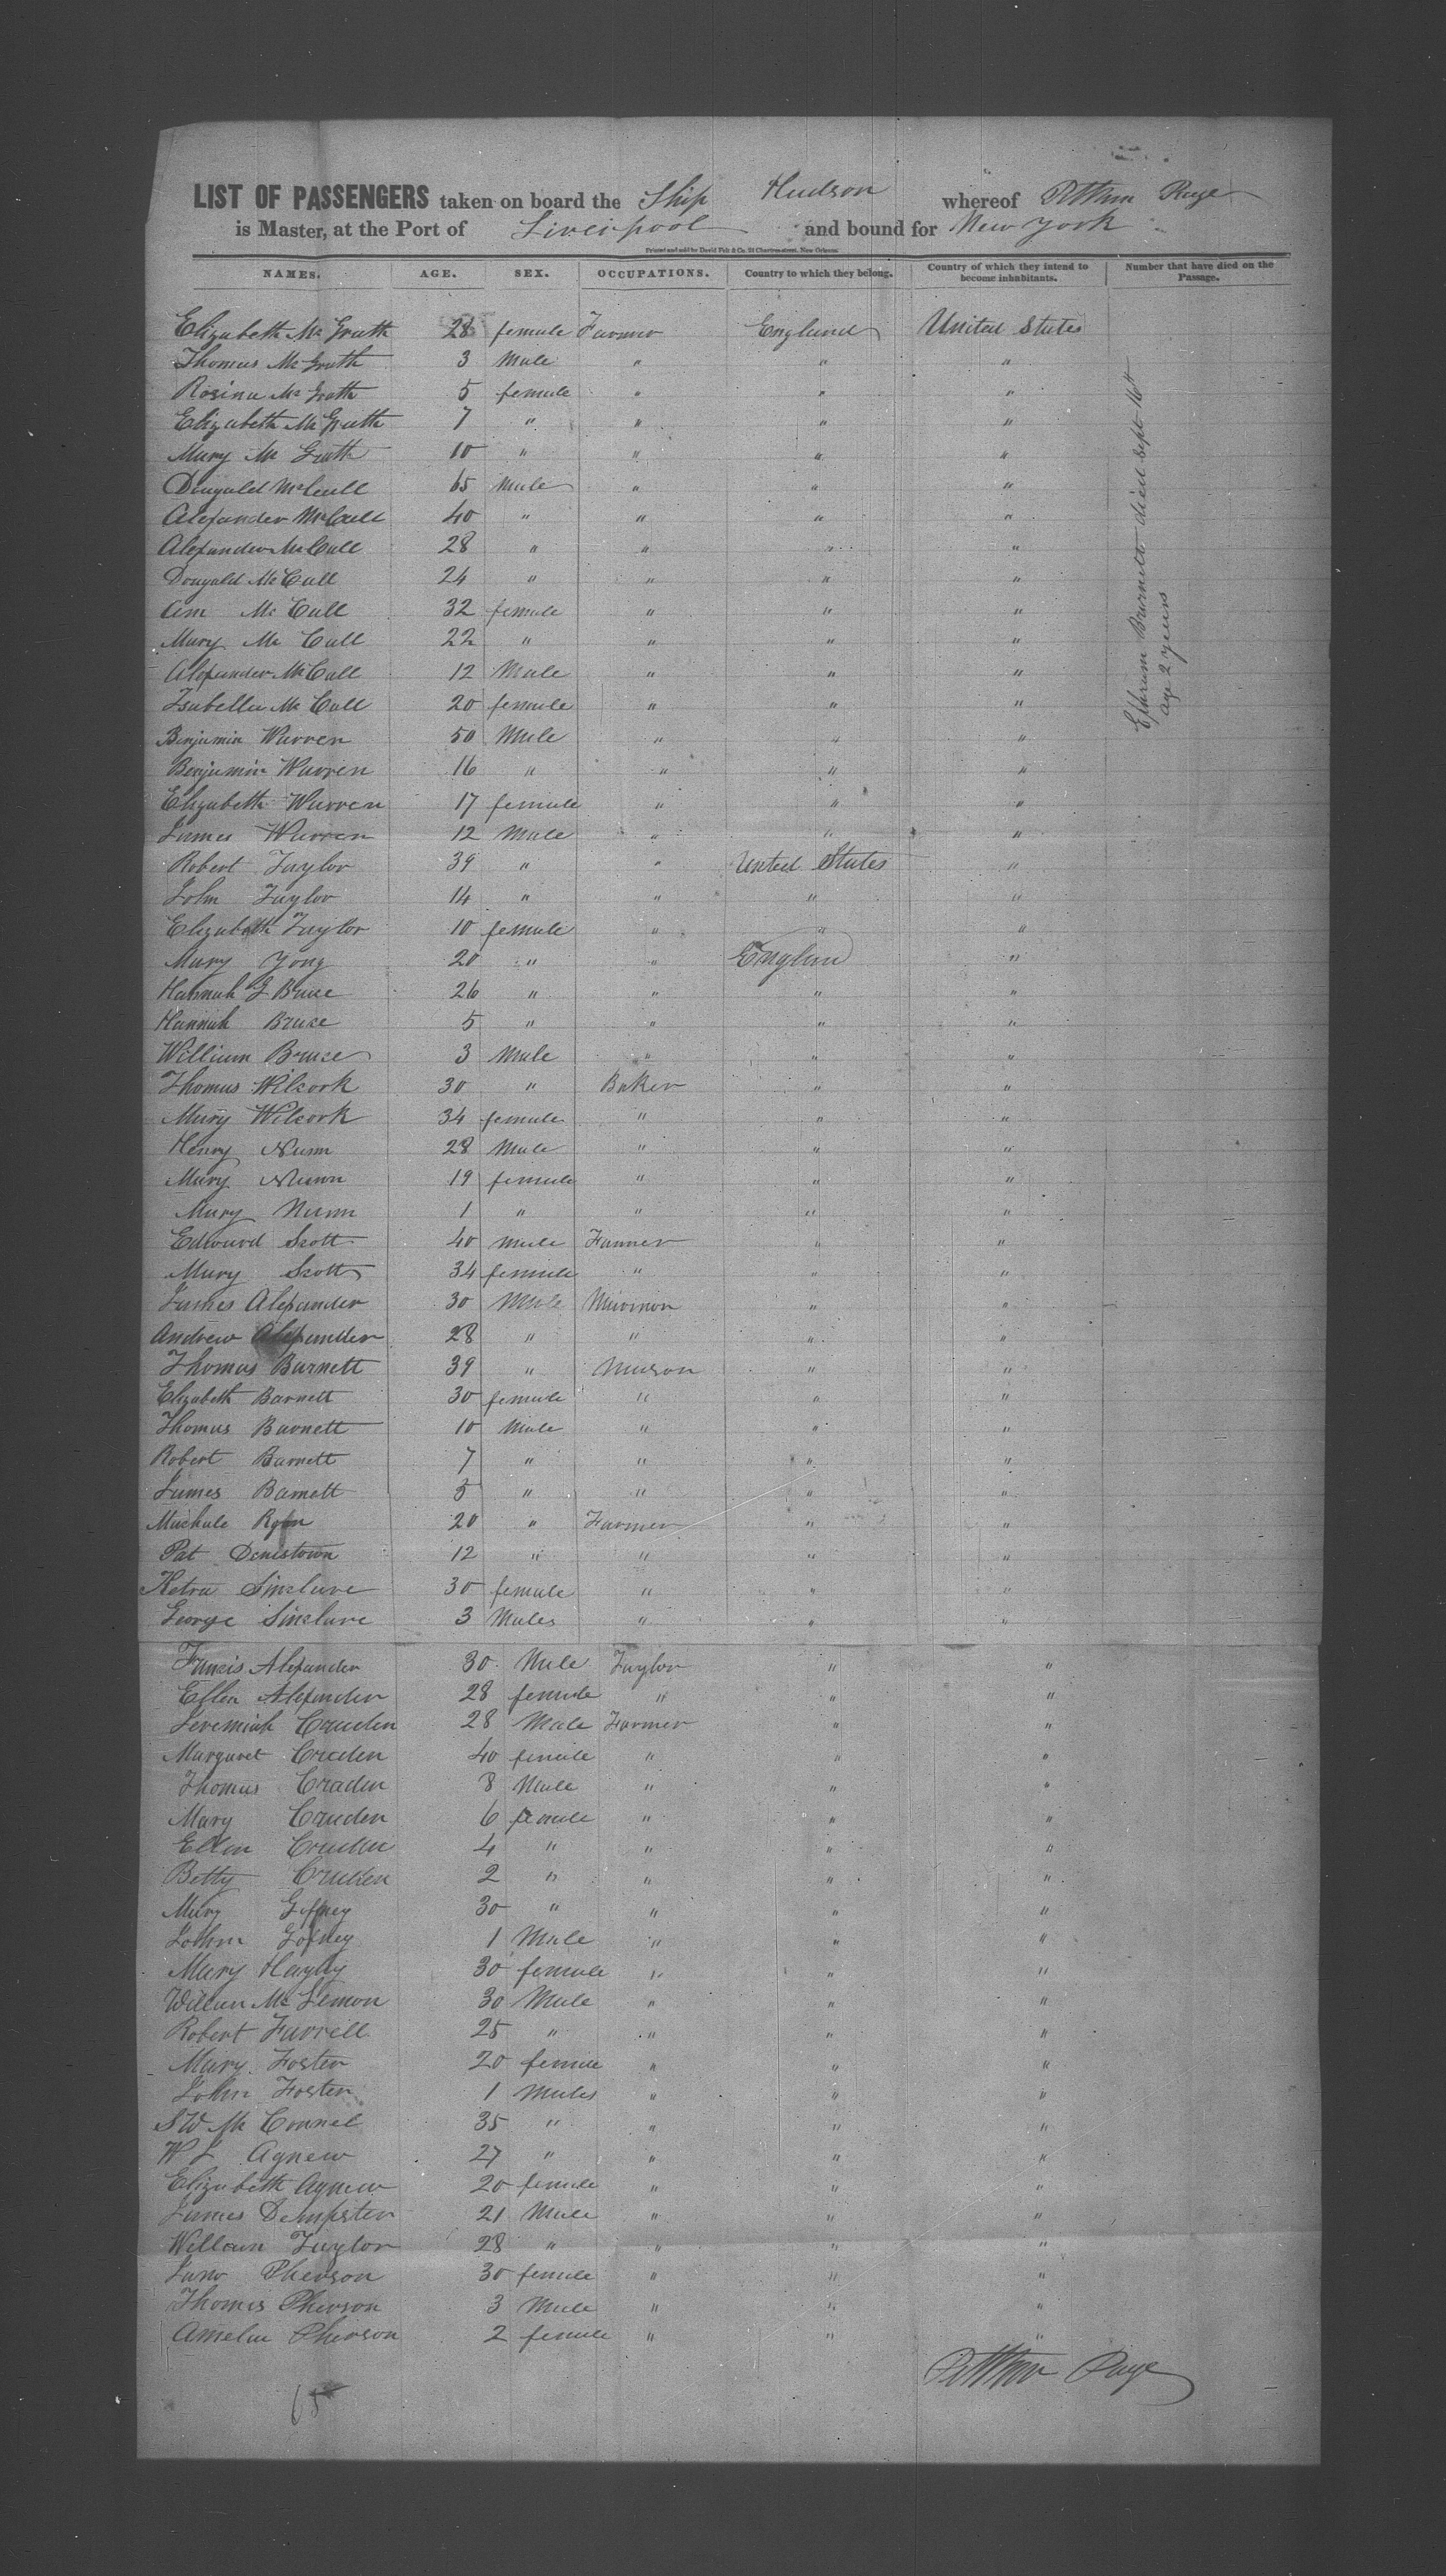 LIST OF PASSENGERS taken on board the Ship Hudson whereof Page
is Master, at the Port of Liverpool and bound for New York
Printed and sold by David Felt & Co. 24 Chartres-street, New Orleans.
NAMES. AGE. SEX. OCCUPATIONS. Country to which they belong. Country of which they intend to become inhabitants. Number that have died on the Passage.
Elizabeth Mc Grath 28 female Farmer England United States
Thomas Mc Grath 3 Male " " "
Rosina Mc Grath 5 female " " "
Elizabeth Mc Grath 7 " " " "
Mary Mc Grath 10 " " " "
Dougald McCall 65 Male " " "
Alexander McCall 40 " " " "
Alexander McCall 28 " " " "
Dougald McCall 24 " " " "
Ann Mc Call 32 female " " "
Mary Mc Call 22 " " " "
Alexander McCall 12 Male " " "
Isabella Mc Call 20 female " " "
Benjamin Warren 50 Male " " "
Benjamin Warren 16 " " " "
Elizabeth Warren 17 female " " "
James Warren 12 Male " " "
Robert Taylor 39 " " United States "
John Taylor 14 " " " "
Elizabeth Taylor 10 female " " "
Mary Yong 20 " " Englan "
Hannah J Bruce 26 " " " "
Hannah Bruce 5 " " " "
William Bruce 3 Male " " "
Thomas Wilcock 30 " Baker " "
Mary Wilcock 34 female " " "
Henry Nunn 28 Male " " "
Mary Nunn 19 female " " "
Mary Nunn 1 " " " "
Edward Scott 40 Male Farmer " "
Mary Scott 34 female " " "
James Alexander 30 Male " "
Andrew Alexander 28 " " " "
Thomas Barnett 39 " Mason " "
Elizabeth Barnett 30 female " " "
Thomas Barnett 10 Male " " "
Robert Barnett 7 " " " "
James Barnett 5 " " " "
Michale Ryan 20 " Farmer " "
Pat Denistown 12 " " " "
Sinclare 30 female " " "
George Sinclare 3 Males " " "
Ephraim Burnett died Sept 16th
age 2 years
Francis Alexander 30 Male Taylor " "
Ellen Alexander 28 female " " "
Jeremiah Crauden 28 Male Farmer " "
Margaret Craden 40 female " " "
Thomas Craden 8 Male " " "
Mary Crauden 6 female " " "
Ellen Craden 4 " " " "
Betty Craden 2 " " " "
Mary Gaffney 30 " " " "
Gaffney 1 Male " " "
Mary 30 female " " "
William Mc Lemon 30 Male " " "
Robert Farrell 25 " " " "
Mary Foster 20 female " " "
John Foster 1 Males " " "
S W Mc Connel 35 " " " "
W L Agnew 27 " " " "
Elizabeth Agnew 20 female " " "
James Dempster 21 Male " " "
William Taylor 28 " " " "
Jane Pherson 30 female " " "
Thomas Pherson 3 Male " " "
Amelia Pherson 2 female " " "
Page
65